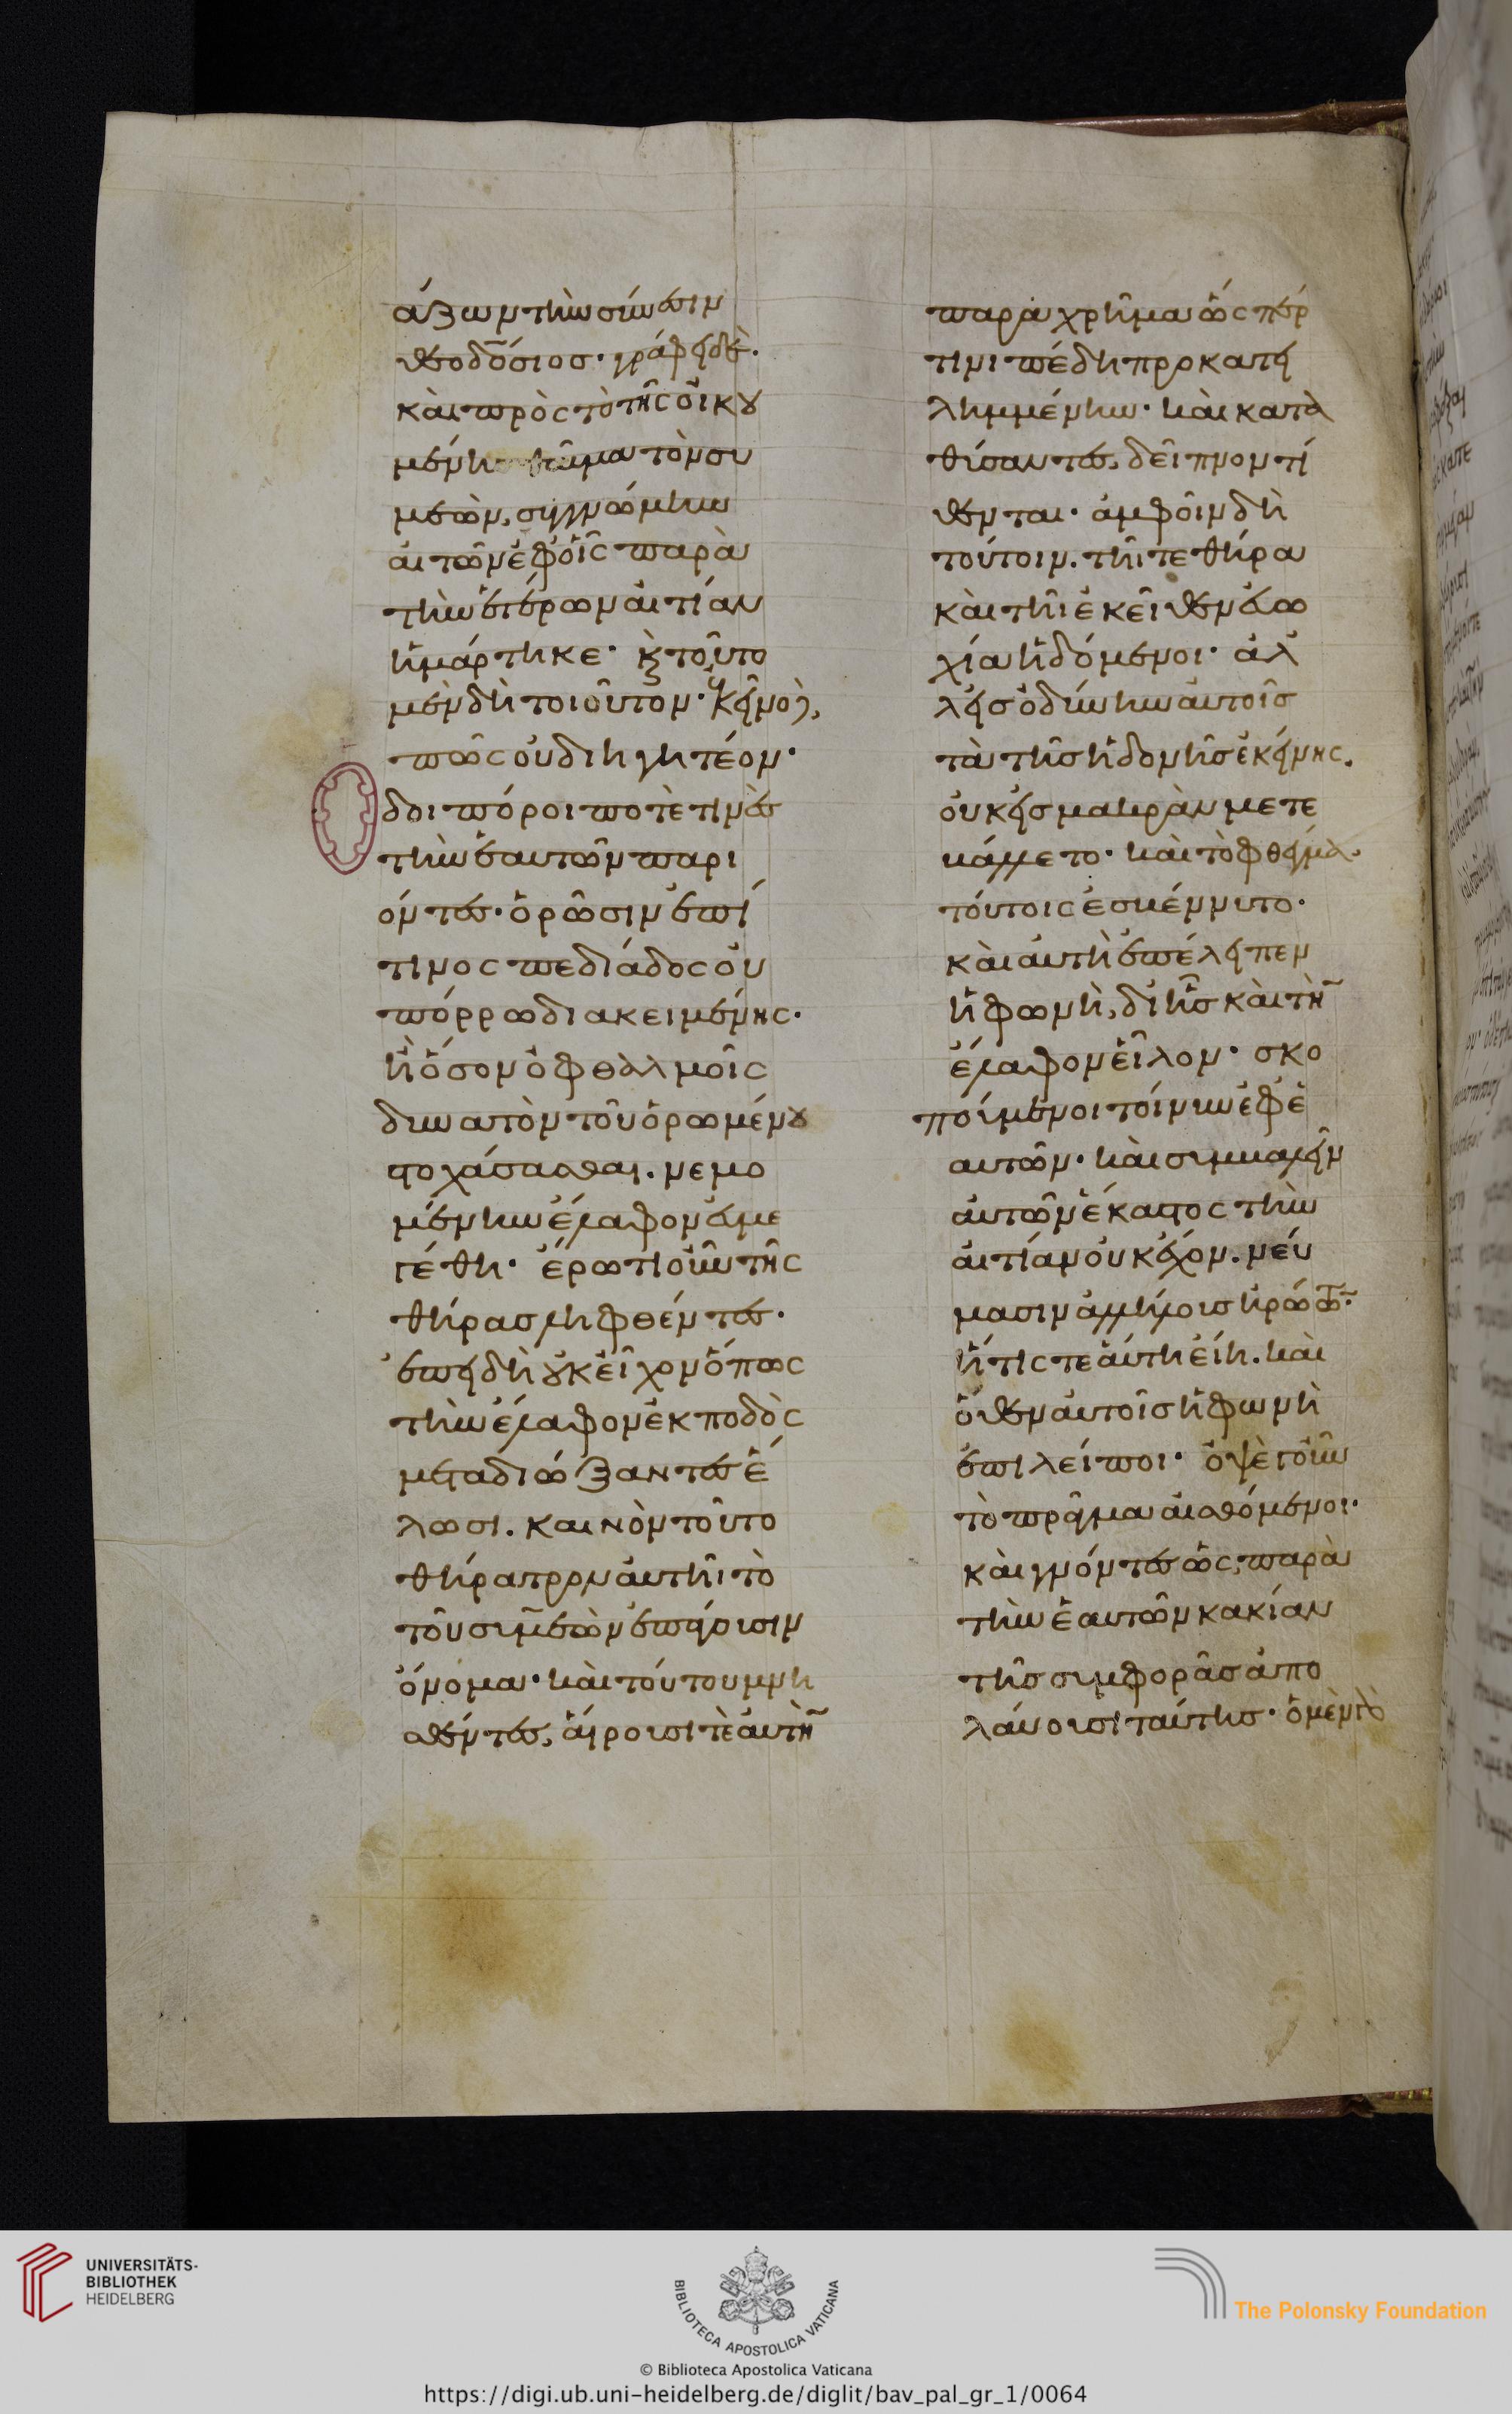 ἄξων τὴν σύνεσιν
Θεοδόσιος· γράφει δὲ·
καὶ πρὸς τὸ τῆς οἰκου
μένης θαῦμα τὸν συ
μεὼν, συγγνώμην
αἰτῶν ἐφ' οἷς παρὰ
τὴν ἑτέρων αἰτίαν
ἡμάρτηκε· καὶ τοῦτο
μὲν δὴ τοιοῦτον·
πῶς οὐ διηγητέον·
Ὁδοιπόροι ποτὲ τινὲς
τὴν ἑαυτῶν παρι
όντες· ὁρῶσιν ἐπί
τινος πεδιάδος οὐ
πόρρω διακειμένης·
ἢ ὅσον ὀφθαλμοῖς
δυνατὸν τοῦ ὁρωμένου
στοχάσασθαι. νεμο
μένην ἔλαφον εὐμε
γέθη· ἔρωτι οὖν τῆς
θήρας ληφθέντες·
ἐπεὶ δὴ οὐκ εἶχον ὅπως
τὴν ἔλαφον ἐκ ποδὸς
μεταδιώξαντες ἕ
λωσι. καινὸν τοῦτο
θήρατρον αὐτῆι τὸ
τοῦ συμεὼν ἐπείουσιν
ὄνομα· καὶ τούτου μνη
σθέντες, αἱροῦσί τε αὐτὴν
παραχρῆμα ὥσπερ
τινι πέδη προκατει
λημμένην· καὶ κατα
θύσαντες, δεῖπνον τί
θενται· ἀμφοῖν δὴ
τούτοιν. τῆι τε θήρα
καὶ τῆι ἐκεῖθεν εὐω
χία ἡδόμενοι· ἀλ
λ' εἰς ὀδύνην αὐτοῖς
τὰ τῆς ἡδονῆς ἐκείνης.
οὐκ εἰς μακρὰν μετε
βάλλετο· καὶ τὸ φθέγμα
τούτοις ἐσβέννυτο·
καὶ αὐτὴ ἐπέλειπεν
ἡ φωνὴ, δι' ἧς καὶ τὴν
ἔλαφον εἷλον· σκο
πούμενοι τοίνυν ἐφ' ἑ
αυτῶν· καὶ συμβαλεῖν
αὐτῶν ἕκαστος τὴν
αἰτίαν οὐκ ἔχων. νεύ
μασιν ἀλλήλους ἠρώτων·
ἥτις τε αὕτη εἴη. καὶ
ὅθεν αὐτοῖς ἡ φωνὴ
ἐπιλείποι· ὀψὲ γοῦν
τὸ πρᾶγμα αἰσθόμενοι·
καὶ γνόντες ὡς, παρὰ
τὴν ἑαυτῶν κακίαν
τῆς συμφορᾶς ἀπο
λαύουσι ταύτης· ὁ μὲν τὸ
UNIVERSITÄTS-
BIBLIOTHEK
HEIDELBERG
BIBLIOTECA APOSTOLICA VATICANA
The Polonsky Foundation
© Biblioteca Apostolica Vaticana
https://digi.ub.uni-heidelberg.de/diglit/bav_pal_gr_1/0064